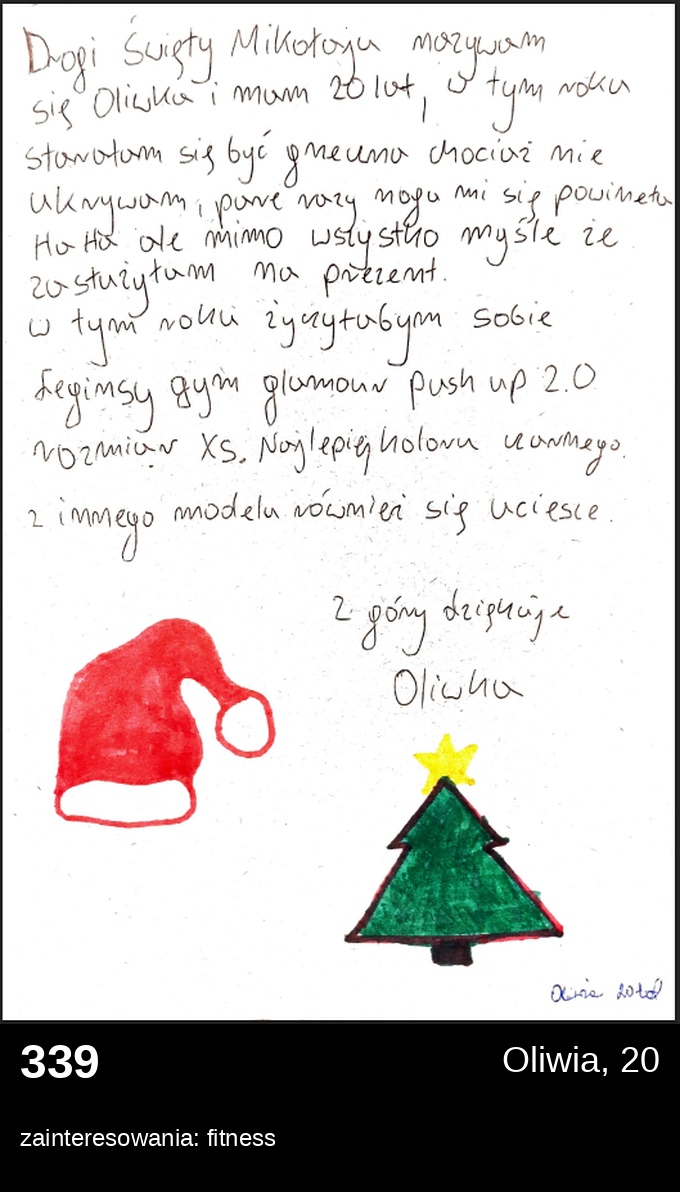 Drogi Święty Mikołaju nazywam
się Oliwka i mam 20 lat, w tym roku
starałam się być grzeczna chociaż nie
ukrywam, pare razy noga mi się powineła
Ha Ha ale mimo wszystko myśle że
zasłużyłam na prezent.
w tym roku życzyłabym sobie
Legginsy gym glamour push up 2.0
rozmiar XS. Najlepiej koloru czarnego.
z innego modelu również się uciesze.
Z góry dziękuje
Oliwka
Oliwia 20 lat
339
Oliwia, 20
zainteresowania: fitness